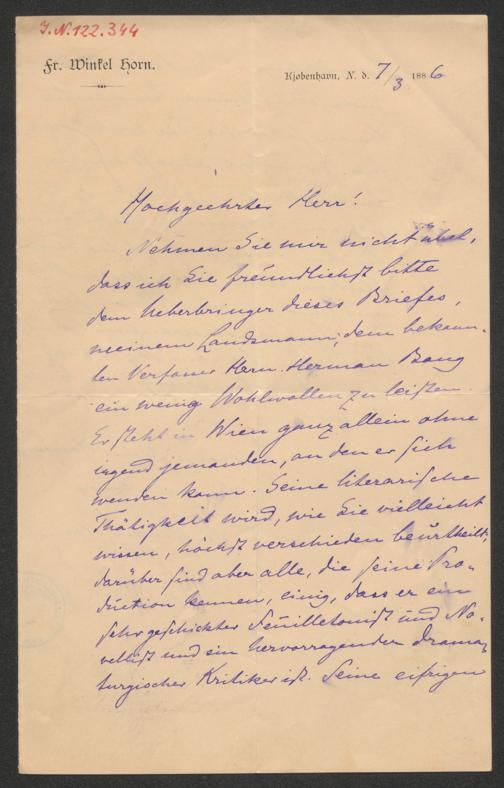 I.N.122.344
Fr. Winkel Horn.
Kjøbenhavn, N. d. 7/3 1886
Hochgeehrter Herr!
Nehmen Sie mir nicht übel,
dass ich Sie freundlichst bitte
dem Ueberbringer dieses Briefes,
meinem Landsmann, dem bekann-
ten Verfasser Herrn Herman Bang
ein wenig Wohlwollen zu leisten.
Er steht in Wien ganz allein ohne
irgend jemanden, an den er sich
wenden kann. Seine literarische
Thätigkeit wird, wie Sie vielleicht
wissen, höchst verschieden beurtheilt;
darüber sind aber alle, die seine Pro-
duction kennen, einig, dass er ein
sehr geschickter Feuilletonist und No-
vellist und ein hervorragender drama-
turgischer Kritiker ist. Seine eifrigen